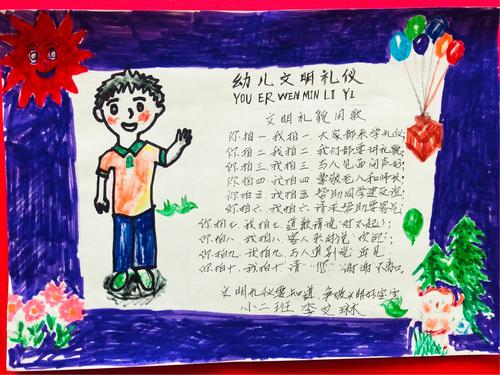 幼儿文明礼仪
YOU ER WEN MIN LI YI
文明礼貌用歌
你拍一我拍一大家都来学礼仪
你拍二.我拍二.我们都要讲礼貌
你拍三.我拍三.与人见面问声好
你拍四.我拍四.尊敬老人和师长
你拍五.我拍五.帮助同学建友谊
你拍六.我拍六.请求帮助要客气
你拍七.我拍七.道歉请说"对不起";
你拍八.我拍八.客人来时说"欢迎";
你拍九.我拍九.与人道别说"再见"
你拍十.我拍十"请""您"谢谢不
文明礼仪要知道争做文明好宝宝
小二班 李又琳